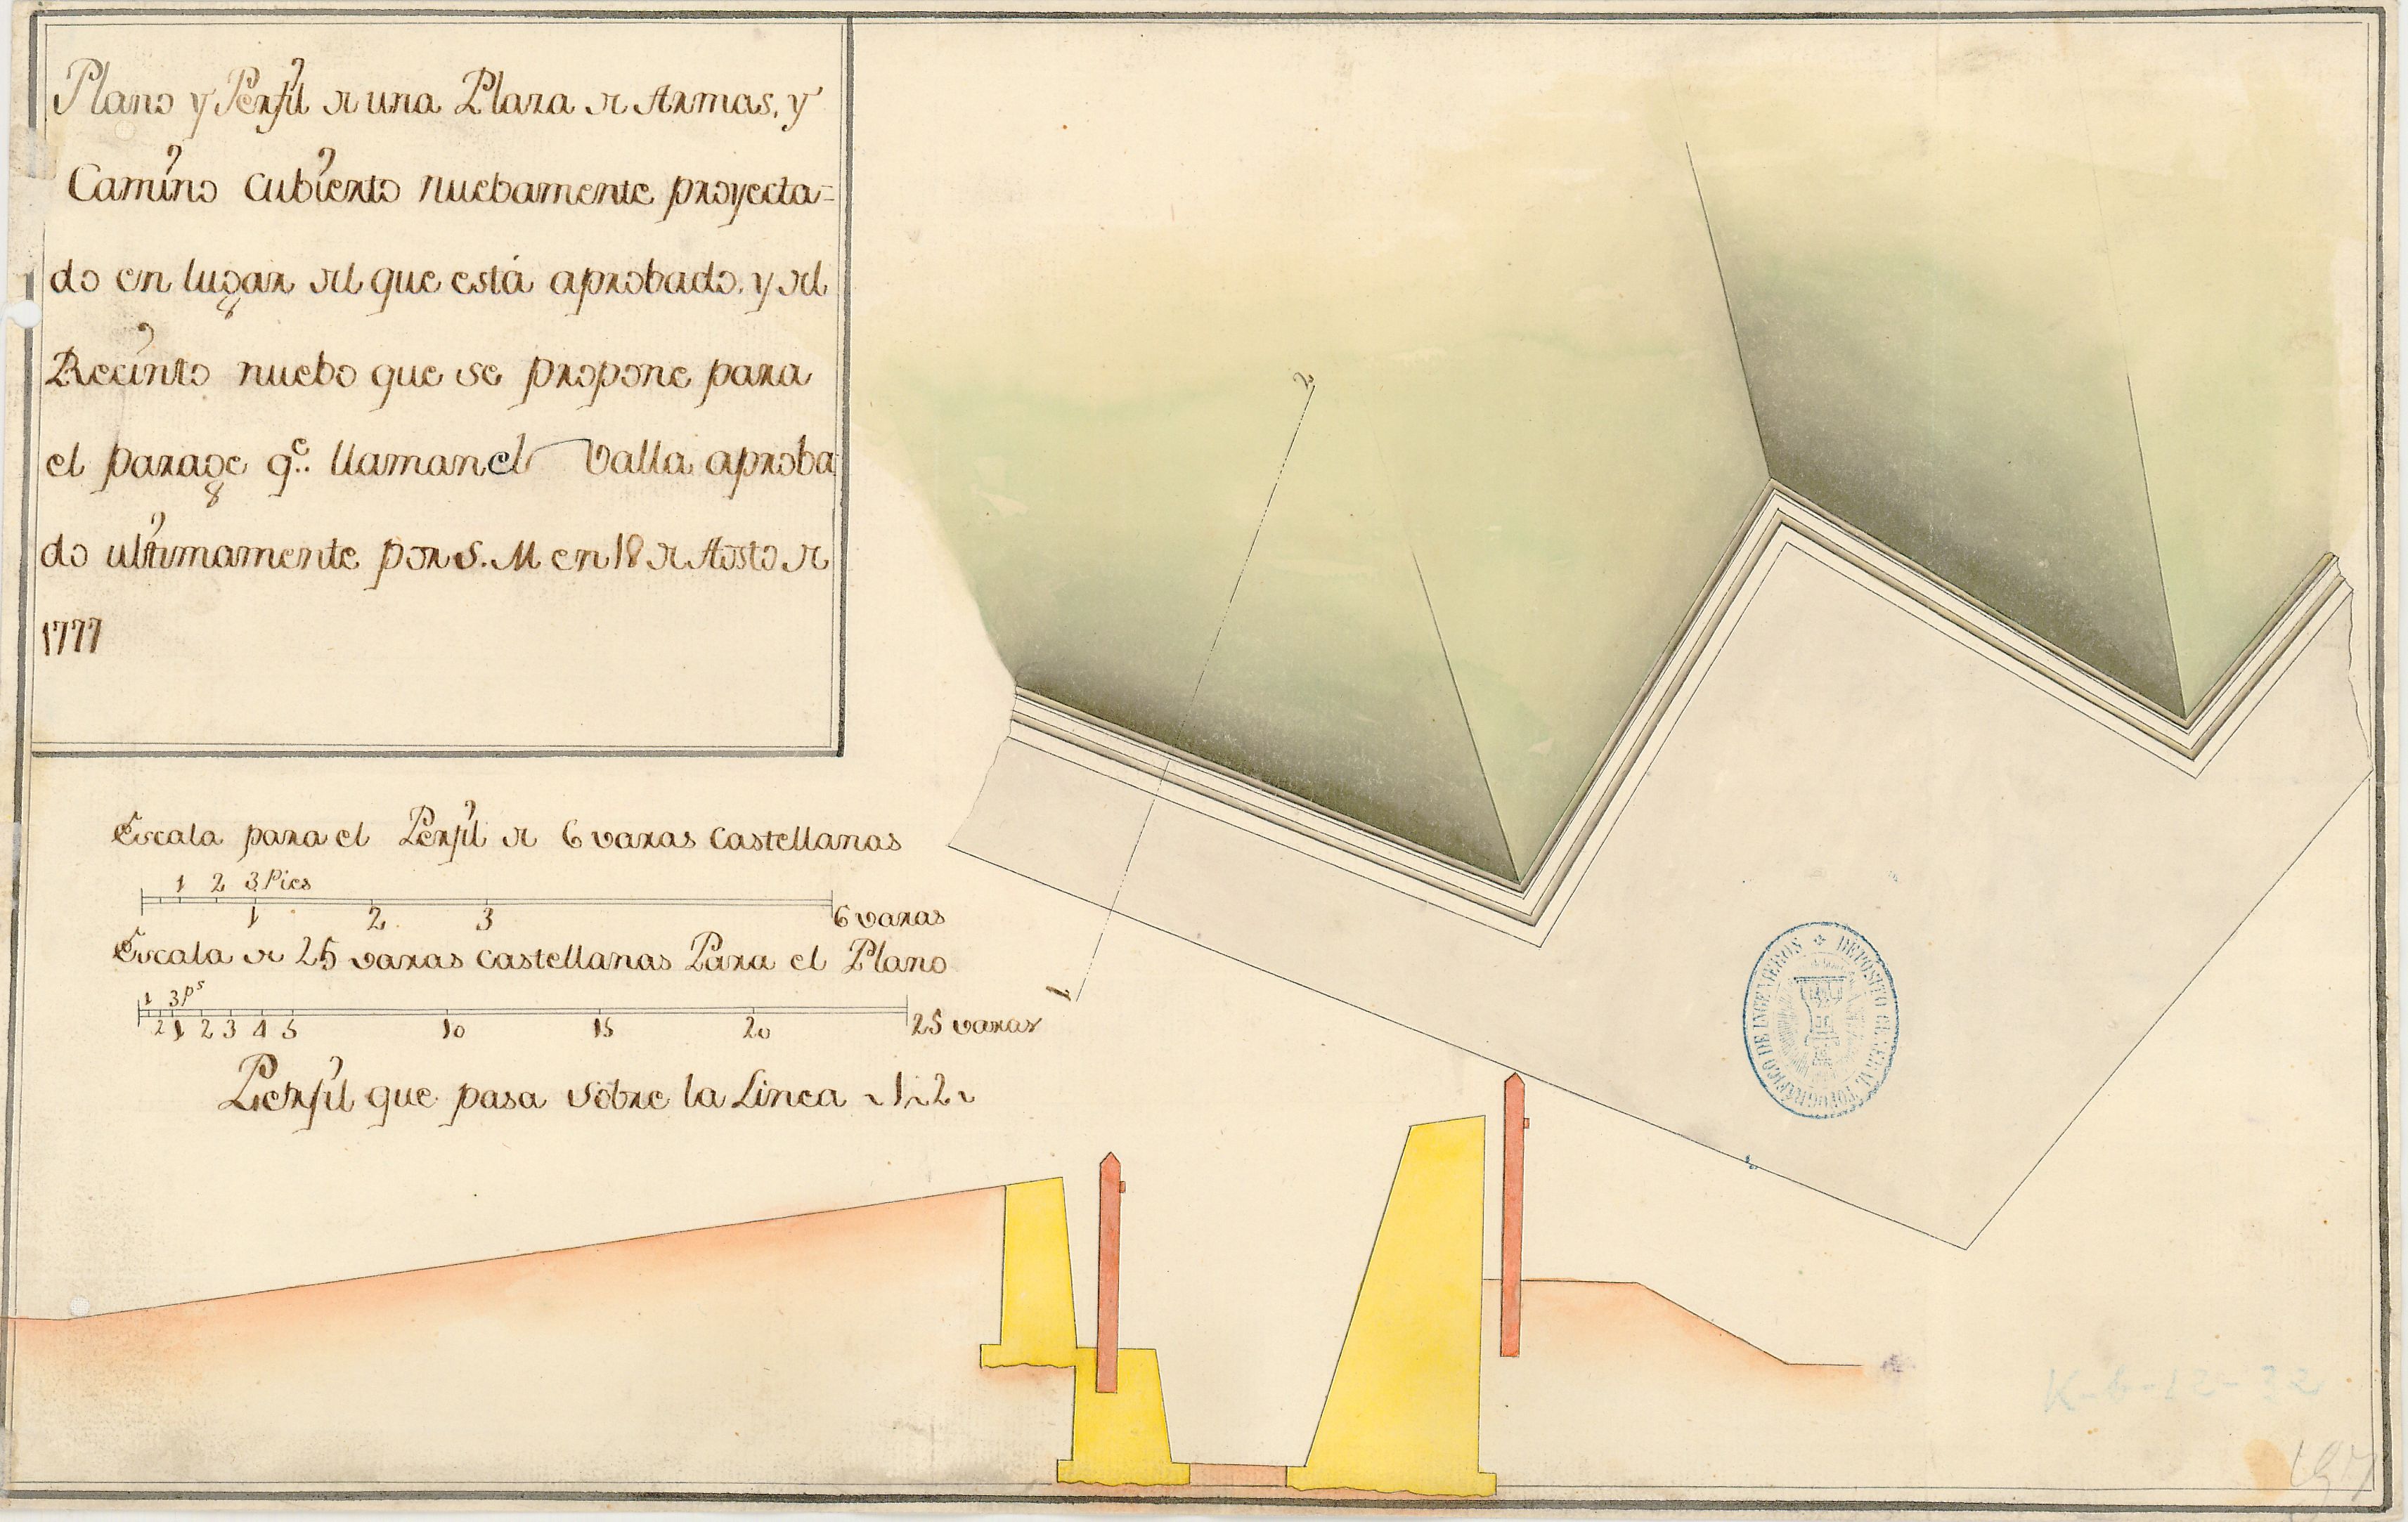 Plano y Perfil de una Plaza de Armas, y
Camino cubierto nuebamente proyecta=
do en lugar del que está aprobado, y del
Recinto nuebo que se propone para
el parage q.e llaman el Valla aproba
do ultimamente por S. M en 18 de Agosto de
1777
Escala para el Perfil de 6 varas castellanas
1 2 3 Pies
1 2 3 6 varas
Escala de 25 varas castellanas Para el Plano
1 3 p.s
2 1 2 3 4 5 10 15 20 25 varas
Perfil que pasa sobre la Linea ~1~2~
2
1
DEPÓSITO GENERAL TOPOGRÁFICO DE INGENIEROS
K-6-12-32
197